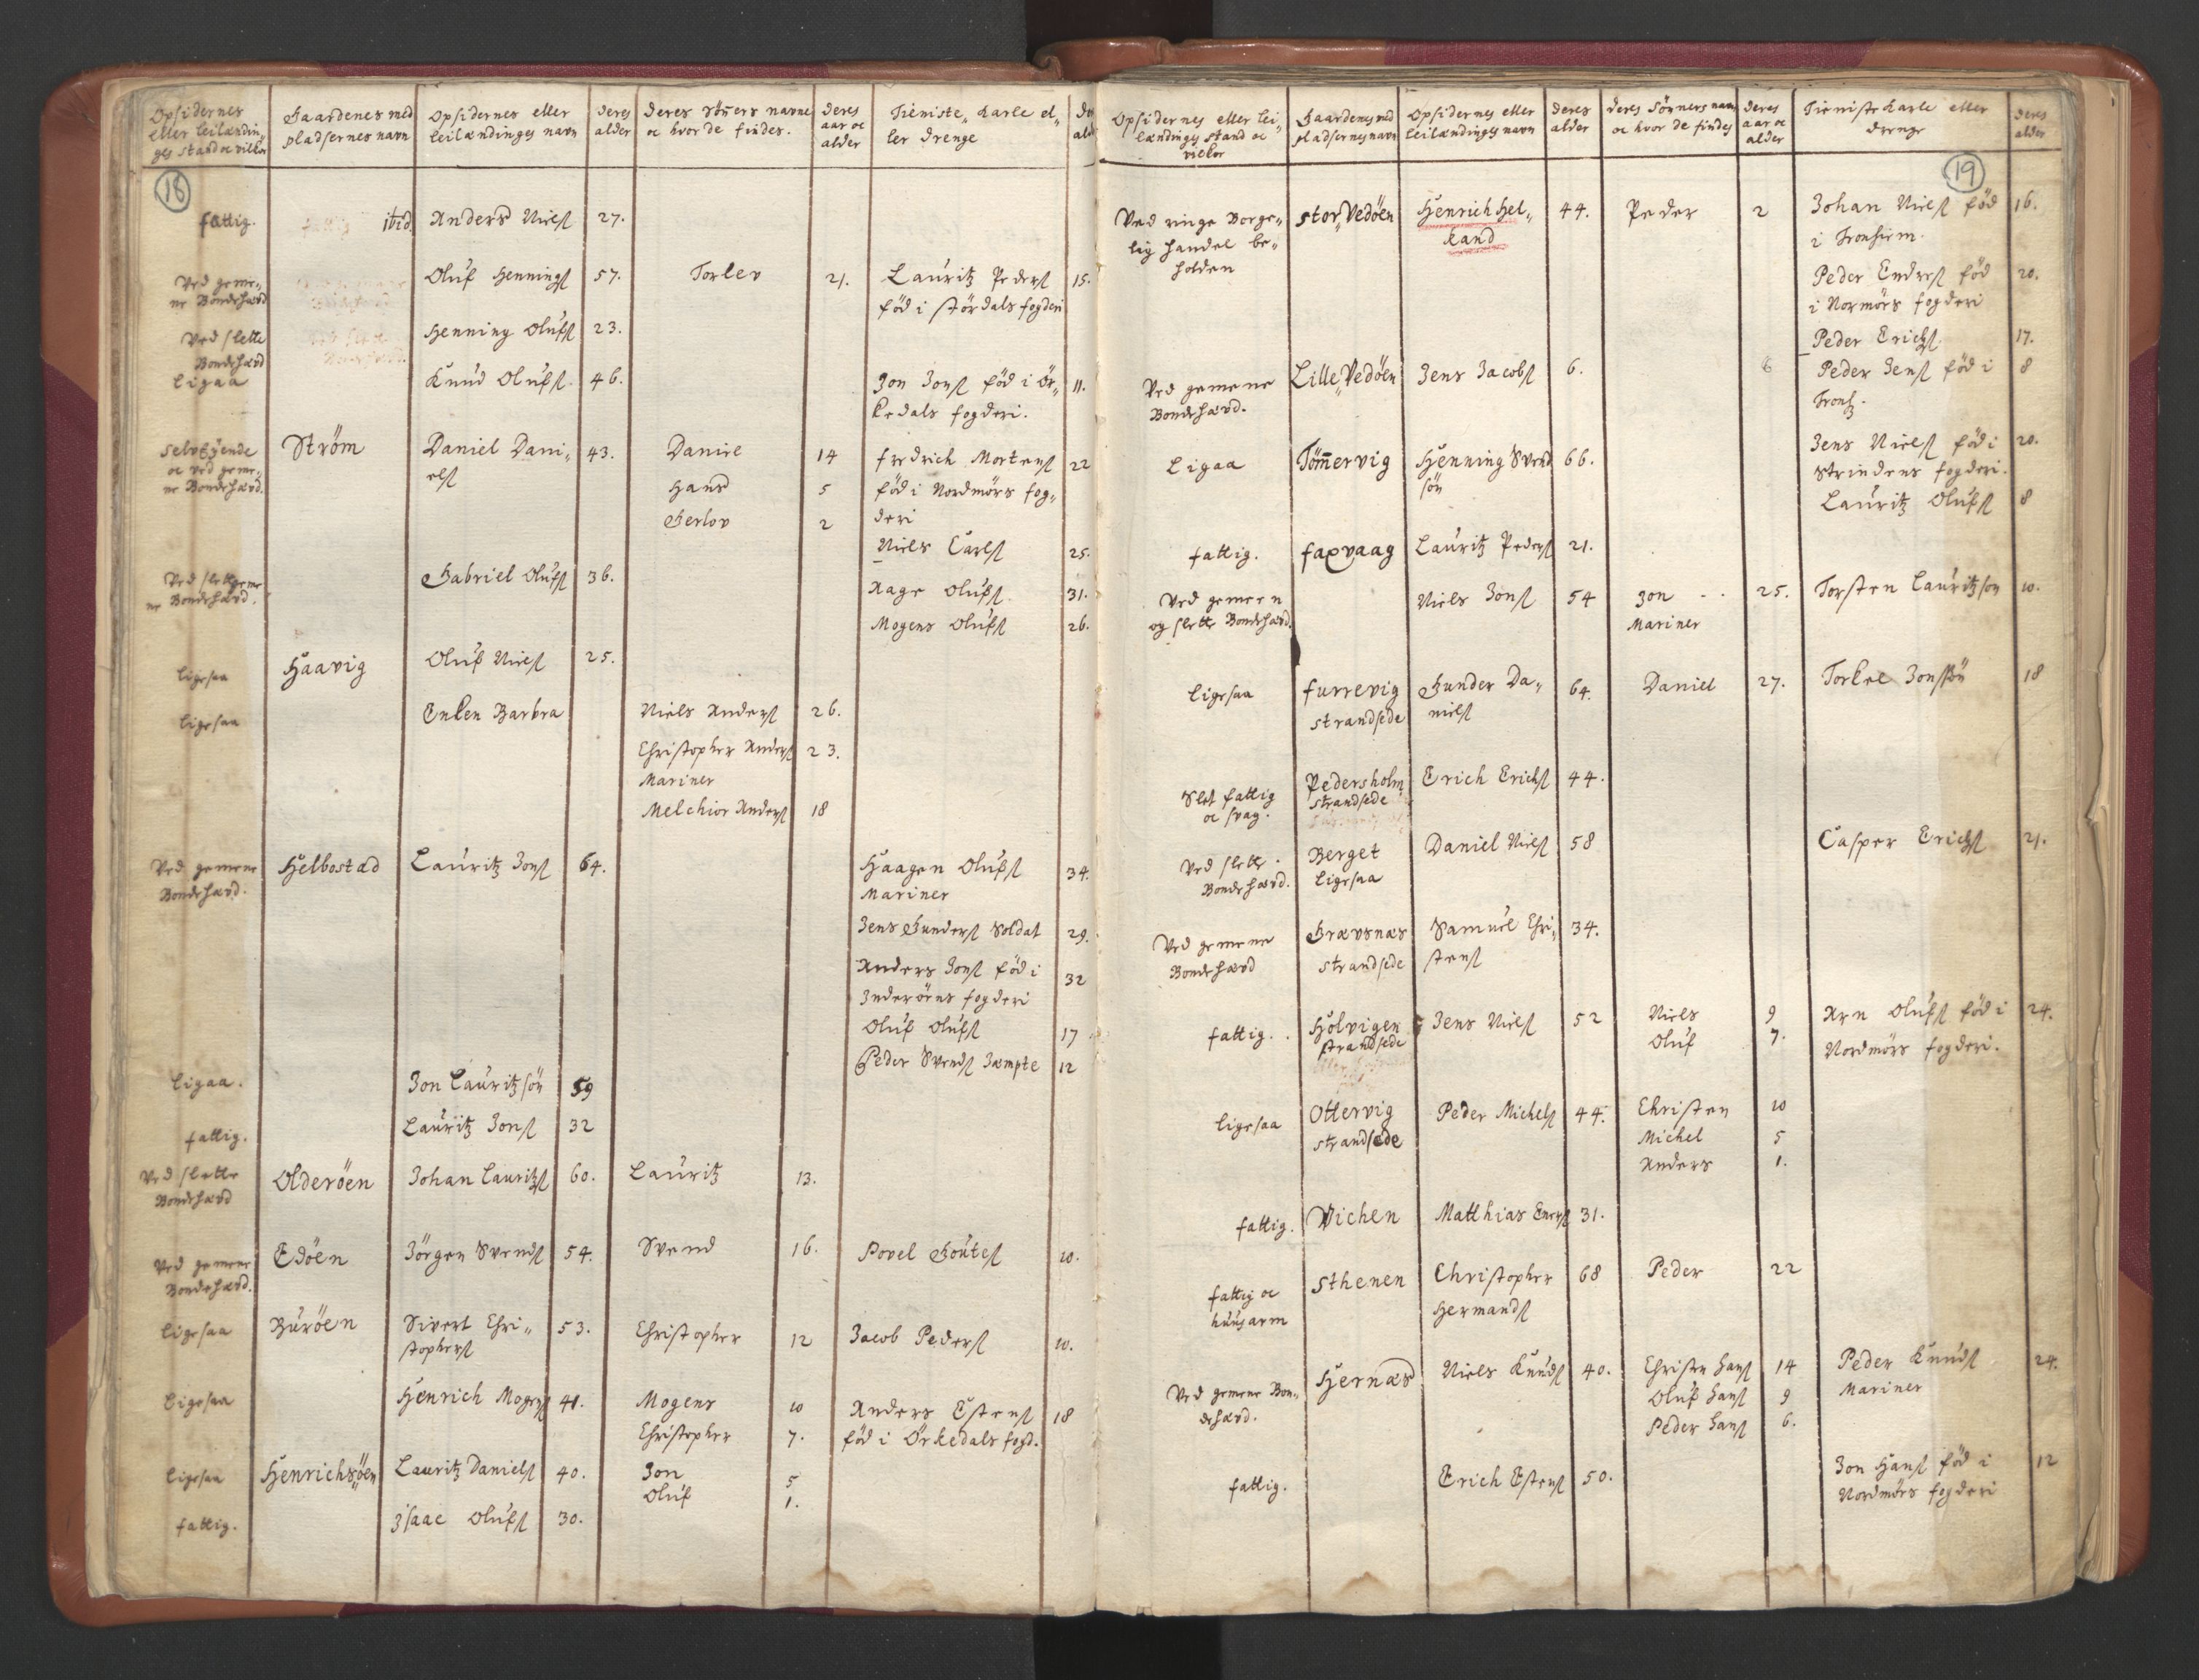 Opsidernes eller leilændin„ ges stand oc vilkor | Gaardenes med pladsernes navn | Opsidernes eller leilændinges navn | deres alder | deres Sönners navne oc hvor de findes. | deres aar oc alder | Tieniste„ Karle el„ ler drenge
18
fattig. | ibid. | Anders Niels | 27.
Ved geme„ ne Bondehævd | Oluf Hennings | 57. | Torlev | 21. | Lauritz Peders | 15.
föd i Stördals fogderi
Ved slette Bondehævd | Henning Olufs | 23.
Ligaa | Knud Olufs | 46. | Jon Jons föd i Ör„ | 11.
kedals fogderi.
Selveyende oc ved geme„ ne Bondehævd. | Ström | Daniel Dani„ els | 43. | Daniel | 14 | fredrich Mortens | 22
Hans | 5 | föd i Nordmörs fog„
Gerlov | 2 | deri
Niels Carls | 25.
Ved slet geme ne Bondehævd. | Gabriel Olufs | 36. | Aage Olufs | 31.
Mogens Olufs | 26.
ligesaa | Haavig | Oluf Niels | 25.
ligesaa | Enken Barbra | Niels Anders | 26.
Christopher Anders | 23.
Mariner
Melchior Anders | 18
Ved gemene Bondehævd. | Helbostad | Lauritz Jons | 64. | Haagen Olufs | 34.
Mariner
Jens Gunders Soldat | 29.
Anders Jons föd i | 32
Inderöens fogderi
Oluf Olufs | 17
Peder Svends Jæmpte | 12
ligaa. | Jon Lauritzsön | 59
fattig. | Lauritz Jons | 32
Ved slette Bondehævd | Olderöen | Johan Lauritzs | 60. | Lauritz | 13.
Ved gemene Bondehævd. | Edöen | Jörgen Svends | 54. | Svend | 16. | Povel Goutes | 10.
ligesaa | Buröen | Sivert Chri„ stophers | 53. | Christopher | 12 | Jacob Peders | 10.
ligesaa | Henrich Mogens | 41. | Mogens | 10 | Anders Estens | 18
Christopher | 7. | föd i Örkedals fogd.
ligesaa | Henrichsöen | Lauritz Daniels | 40. | Jon | 5
Oluf | 1.
fattig. | Isaac Olufs | 30.

Opsidernes eller lei„ lændinges stand oc vilkor | Gaardenes med pladsernes navn | Opsidernes eller leilændinges navn | deres alder | deres Sönners navn oc hvor de findes | deres aar oc alder | Tieniste Karle eller drenge | deres alder
19
Ved ringe Borge„ lig handel be„ holden | Stor„Vedöen | Henrich Hel„ kand | 44. | Peder | 2 | Johan Niels föd | 16.
i Tronhiem.
Peder Endres föd | 20.
i Normörs fogderi
Peder Erichs | 17.
Ved gemene Bondehævd. | Lille„Vedöen | Jens Jacobs | 6. | 6 | Peder Jens föd i | 8
Tronh.
Ligaa | Tömmervig | Henning Svend sön | 66. | Jens Niels föd i | 20.
Strindens fogderi.
Lauritz Olufs | 8
fattig. | faxvaag | Lauritz Peders | 21.
Ved gemeen og slette Bondehævd. | Niels Jons | 54 | Jon | 25. | Torsten Lauritzson | 10.
Mariner
ligesaa | furrevig strandsede | Gunder Da„ niels | 64. | Daniel | 27. | Torkel Jonssön | 18
Slet fattig oc svag. | Pedersholm strandsede | Erich Erichs | 44.
Ved slette Bondehævd. | Berget ligesaa | Daniel Niels | 58 | Casper Erichs | 21.
Ved gemene Bondehævd | Grævsnæs strandsede | Samuel Chri„ stens | 34.
fattig. | Holvigen strandsede | Jens Niels | 52 | Niels | 9 | Arn Olufs föd i | 24.
Oluf | 7. | Nordmörs fogderi.
ligesaa | Ottervig strandsede | Peder Michels | 44. | Christen | 10
Michel | 5
Anders | 1.
fattig. | Vichen | Matthias Evers | 31.
fattig oc huusarm | Sthenen | Christopher Hermands | 68 | Peder | 22
Ved gemene Bon„ dehævd. | Hernæs | Niels Knuds | 40. | Christen Hans | 14 | Peder Knuds | 24.
Oluf Hans | 9 | Mariner
Peder Hans | 6.
fattig. | Erich Estens | 50. | Jon Hans föd i | 12
Nordmörs fogderi